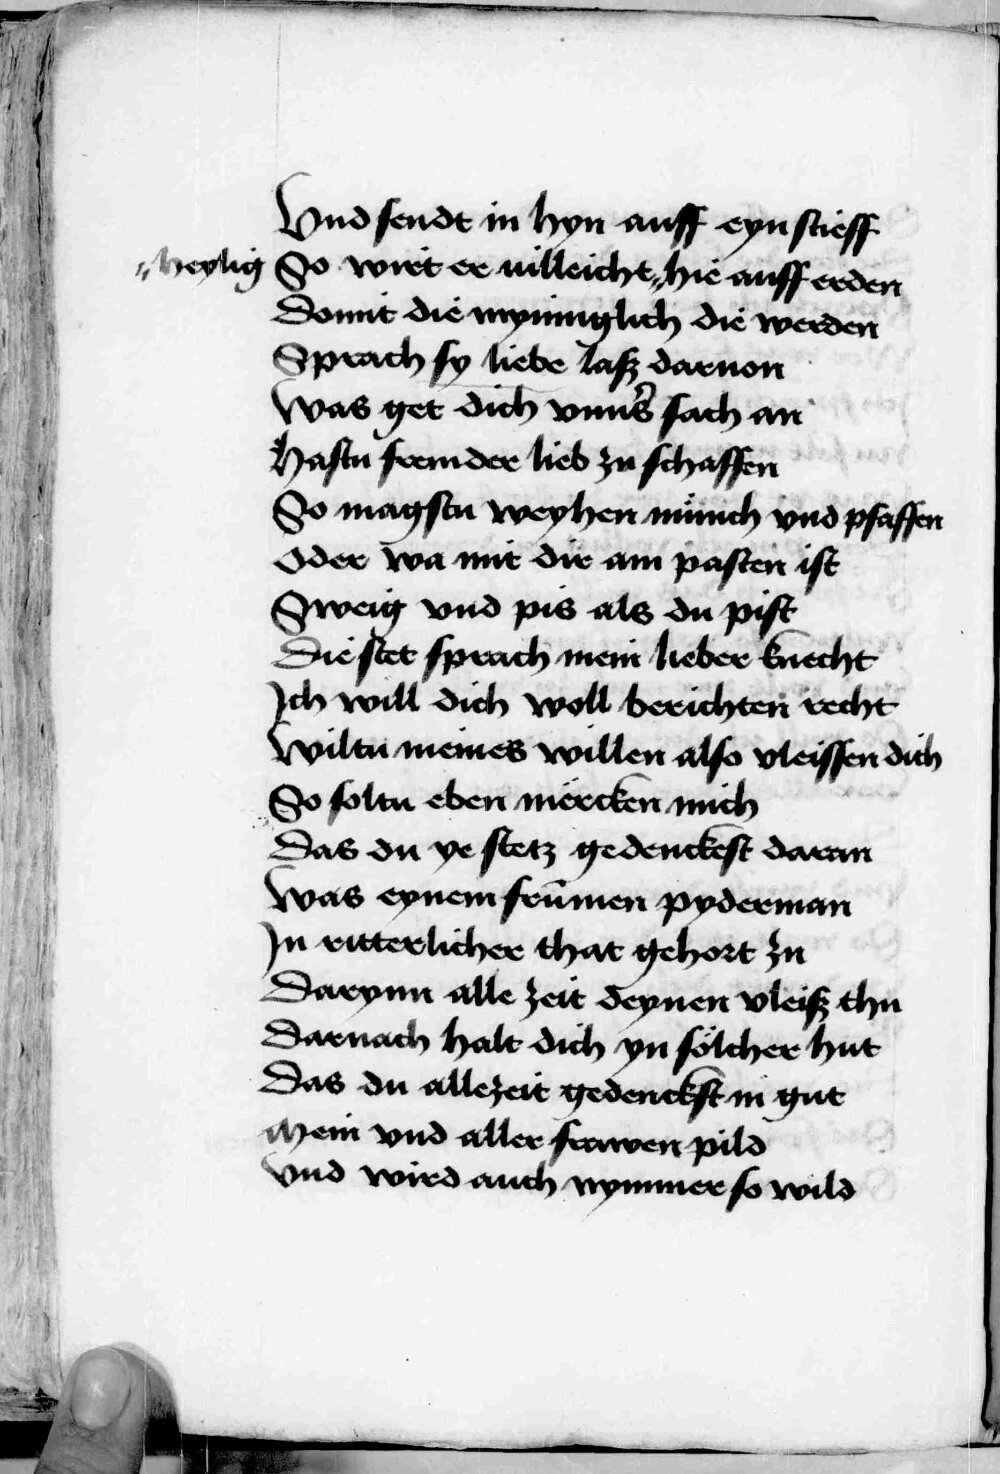 Vnd sendt in hyn auff eyn stieff
"heylig So wirt er uilleicht "hie auff erden
Domit die mynniglich die werden
Sprach sy liebe lasz daruon
Was get dich vnns̉ sach an
Hastu fremder lieb zu schaffen
So magstu weyhen mün̈ch vnd pfaffen
Oder wa mit dir am pasten ist
Sweig vnd pis als du pist
Die stet sprach mein lieber knecht
Ich will dich woll berichten recht
Wiltu meines willen also vleissen dich
So soltu eben mërcken mich
Das du ye stetz gedenckest daran
Was eynem frūmen pyderman
In ritterlicher that gehort zu
Darynn alle zeit deynen vleisz thu
Darnach halt dich yn sölcher hut
Das du allezeit gedenckst in gut
Mein vnd aller frawen pild
Vnd wird auch nymmer so wild